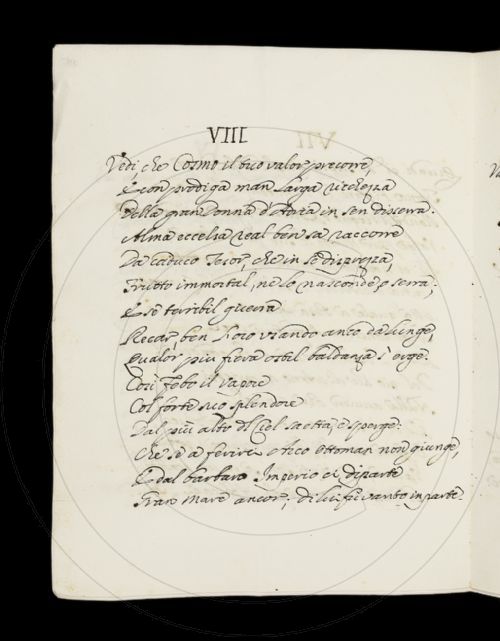 VIII
Vedi, che Cosmo il tuo valor precorre,
E con prodiga man larga ricchezza
Della gran Donna d'Adria in sen disserra.
Alma eccelsa real ben sa raccorre
Da caduco Tesor, che in se disprezza,
Frutto immortal, ne lo nasconde, o serra;
E se terribil guerra
Recar, ben loco usando anco da lunge,
Qualor piu fiera ostil baldanza s'erge.
Cosi Febo il vapore
Col forte suo splendore
Dal piu alto Ciel saetta, e sperge.
Che se a ferirti Ottoman non giunge,
E dal barbaro Imperio ci diparte
Gran Mare ancor; di lui fu vanto in parte